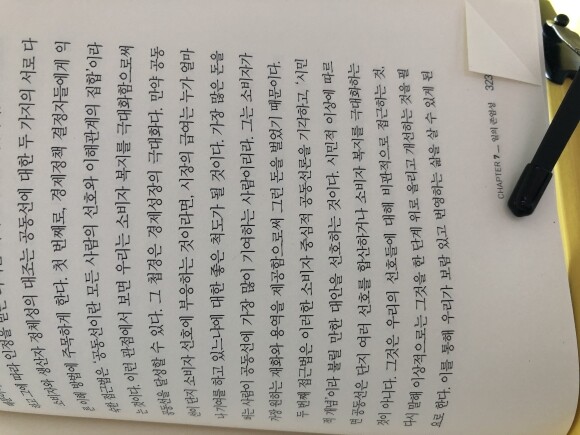 따라 인정을 받는
소비자와 생산자 정체성의 대조는 공동선에 대한 두 가지의 서로 다
른 이해 방법에 주목하게 한다. 첫 번째로, 경제정책 결정자들에게 익
숙한 접근법은 '공동선이란 모든 사람의 선호와 이해관계의 집합'이라
는 것이다. 이런 관점에서 보면 우리는 소비자 복지를 극대화함으로써
공동선을 달성할 수 있다. 그 첩경은 경제성장의 극대화다. 만약 공동
선이 단지 소비자 선호에 부응하는 것이라면, 시장의 급여는 누가 얼마
나 기여를 하고 있느냐에 대한 좋은 척도가 될 것이다. 가장 많은 돈을
버는 사람이 공동선에 가장 많이 기여하는 사람이리라. 그는 소비자가
가장 원하는 재화와 용역을 제공함으로써 그런 돈을 벌었기 때문이다.
두 번째 접근법은 이러한 소비자 중심적 공동선론을 기각하고, '시민
적 개념'이라 불릴 만한 대안을 선호하는 것이다. 시민적 이상에 따르
면 공동선은 단지 여러 선호를 합산하거나 소비자 복지를 극대화하는
것이 아니다. 그것은 우리의 선호들에 대해 비판적으로 접근하는 것,
다시 말해 이상적으로는 그것을 한 단계 위로 올리고 개선하는 것을 필
요로 한다. 이를 통해 우리가 보람 있고 번영하는 삶을 살 수 있게 된
CHAPTER 7 — 일의 존엄성 323